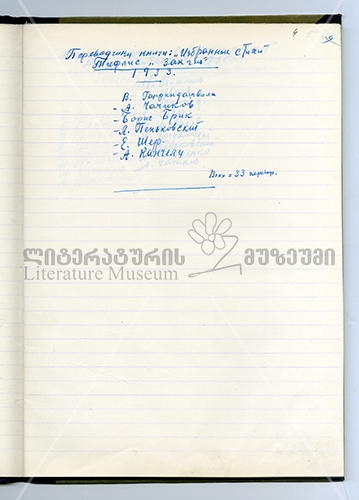 Переводчики книги: „Избранные стихи"
Тифлис „Закгиз"
1933.
В. Гаприндашвили
- А. Чачиков
- Борис Брик
- Л. Пеньковский
- Е. Шер.
- А. Канчели
Всех = 33
ლიტერატურის მუზეუმი
Literature Museum